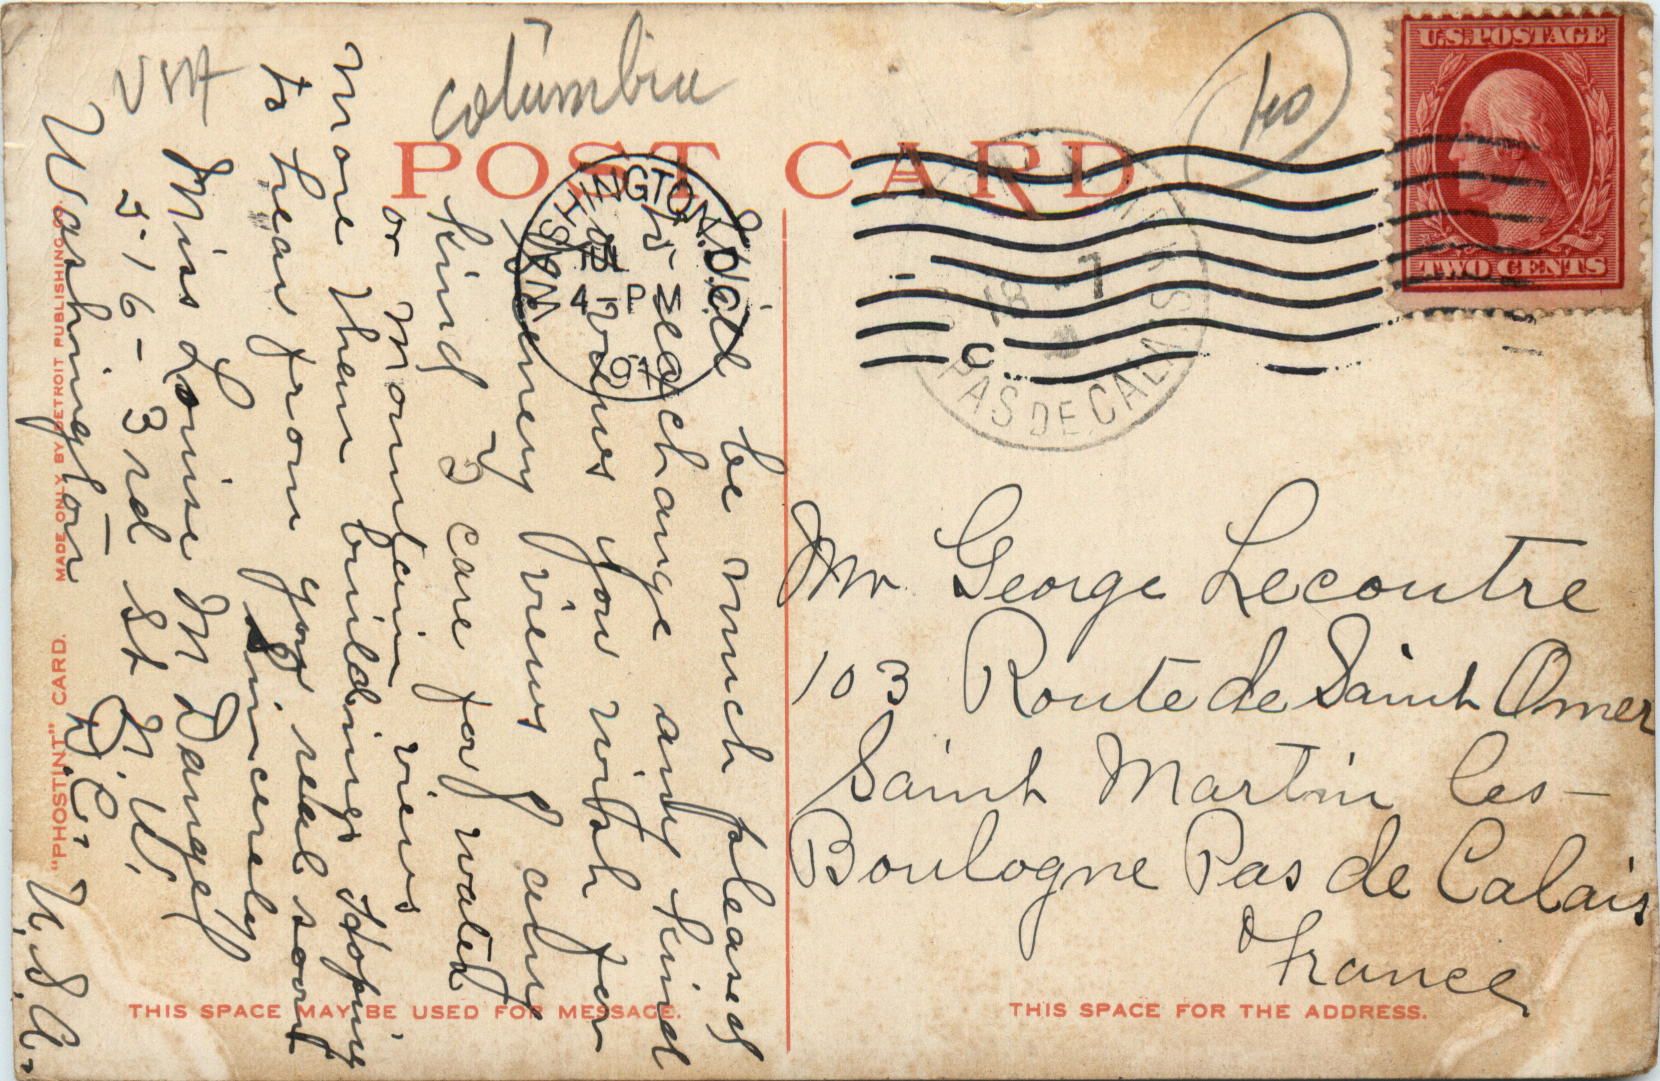 U.S.POSTAGE
TWO CENTS
Columbia
USA
POST CARD
WASHINGTON, D.C.
4-P M
18 -7
PAS DE CALAIS
Will be much pleased
to exchange any kind
of views you wish for
scenery views any
kind I care for water
or Mountain views
more them buildings Hoping
to hear from you real soon
Sincerely
Miss Louise M Dangel
516-3rd St N.W.
Washington
D.C. U.S.A.
Mr George Lecoutre
103 Route de Saint Omer
Saint Martin les-
Boulogne Pas de Calais
France
"PHOSTINT" CARD. MADE ONLY BY DETROIT PUBLISHING CO.
THIS SPACE MAY BE USED FOR MESSAGE.
THIS SPACE FOR THE ADDRESS.